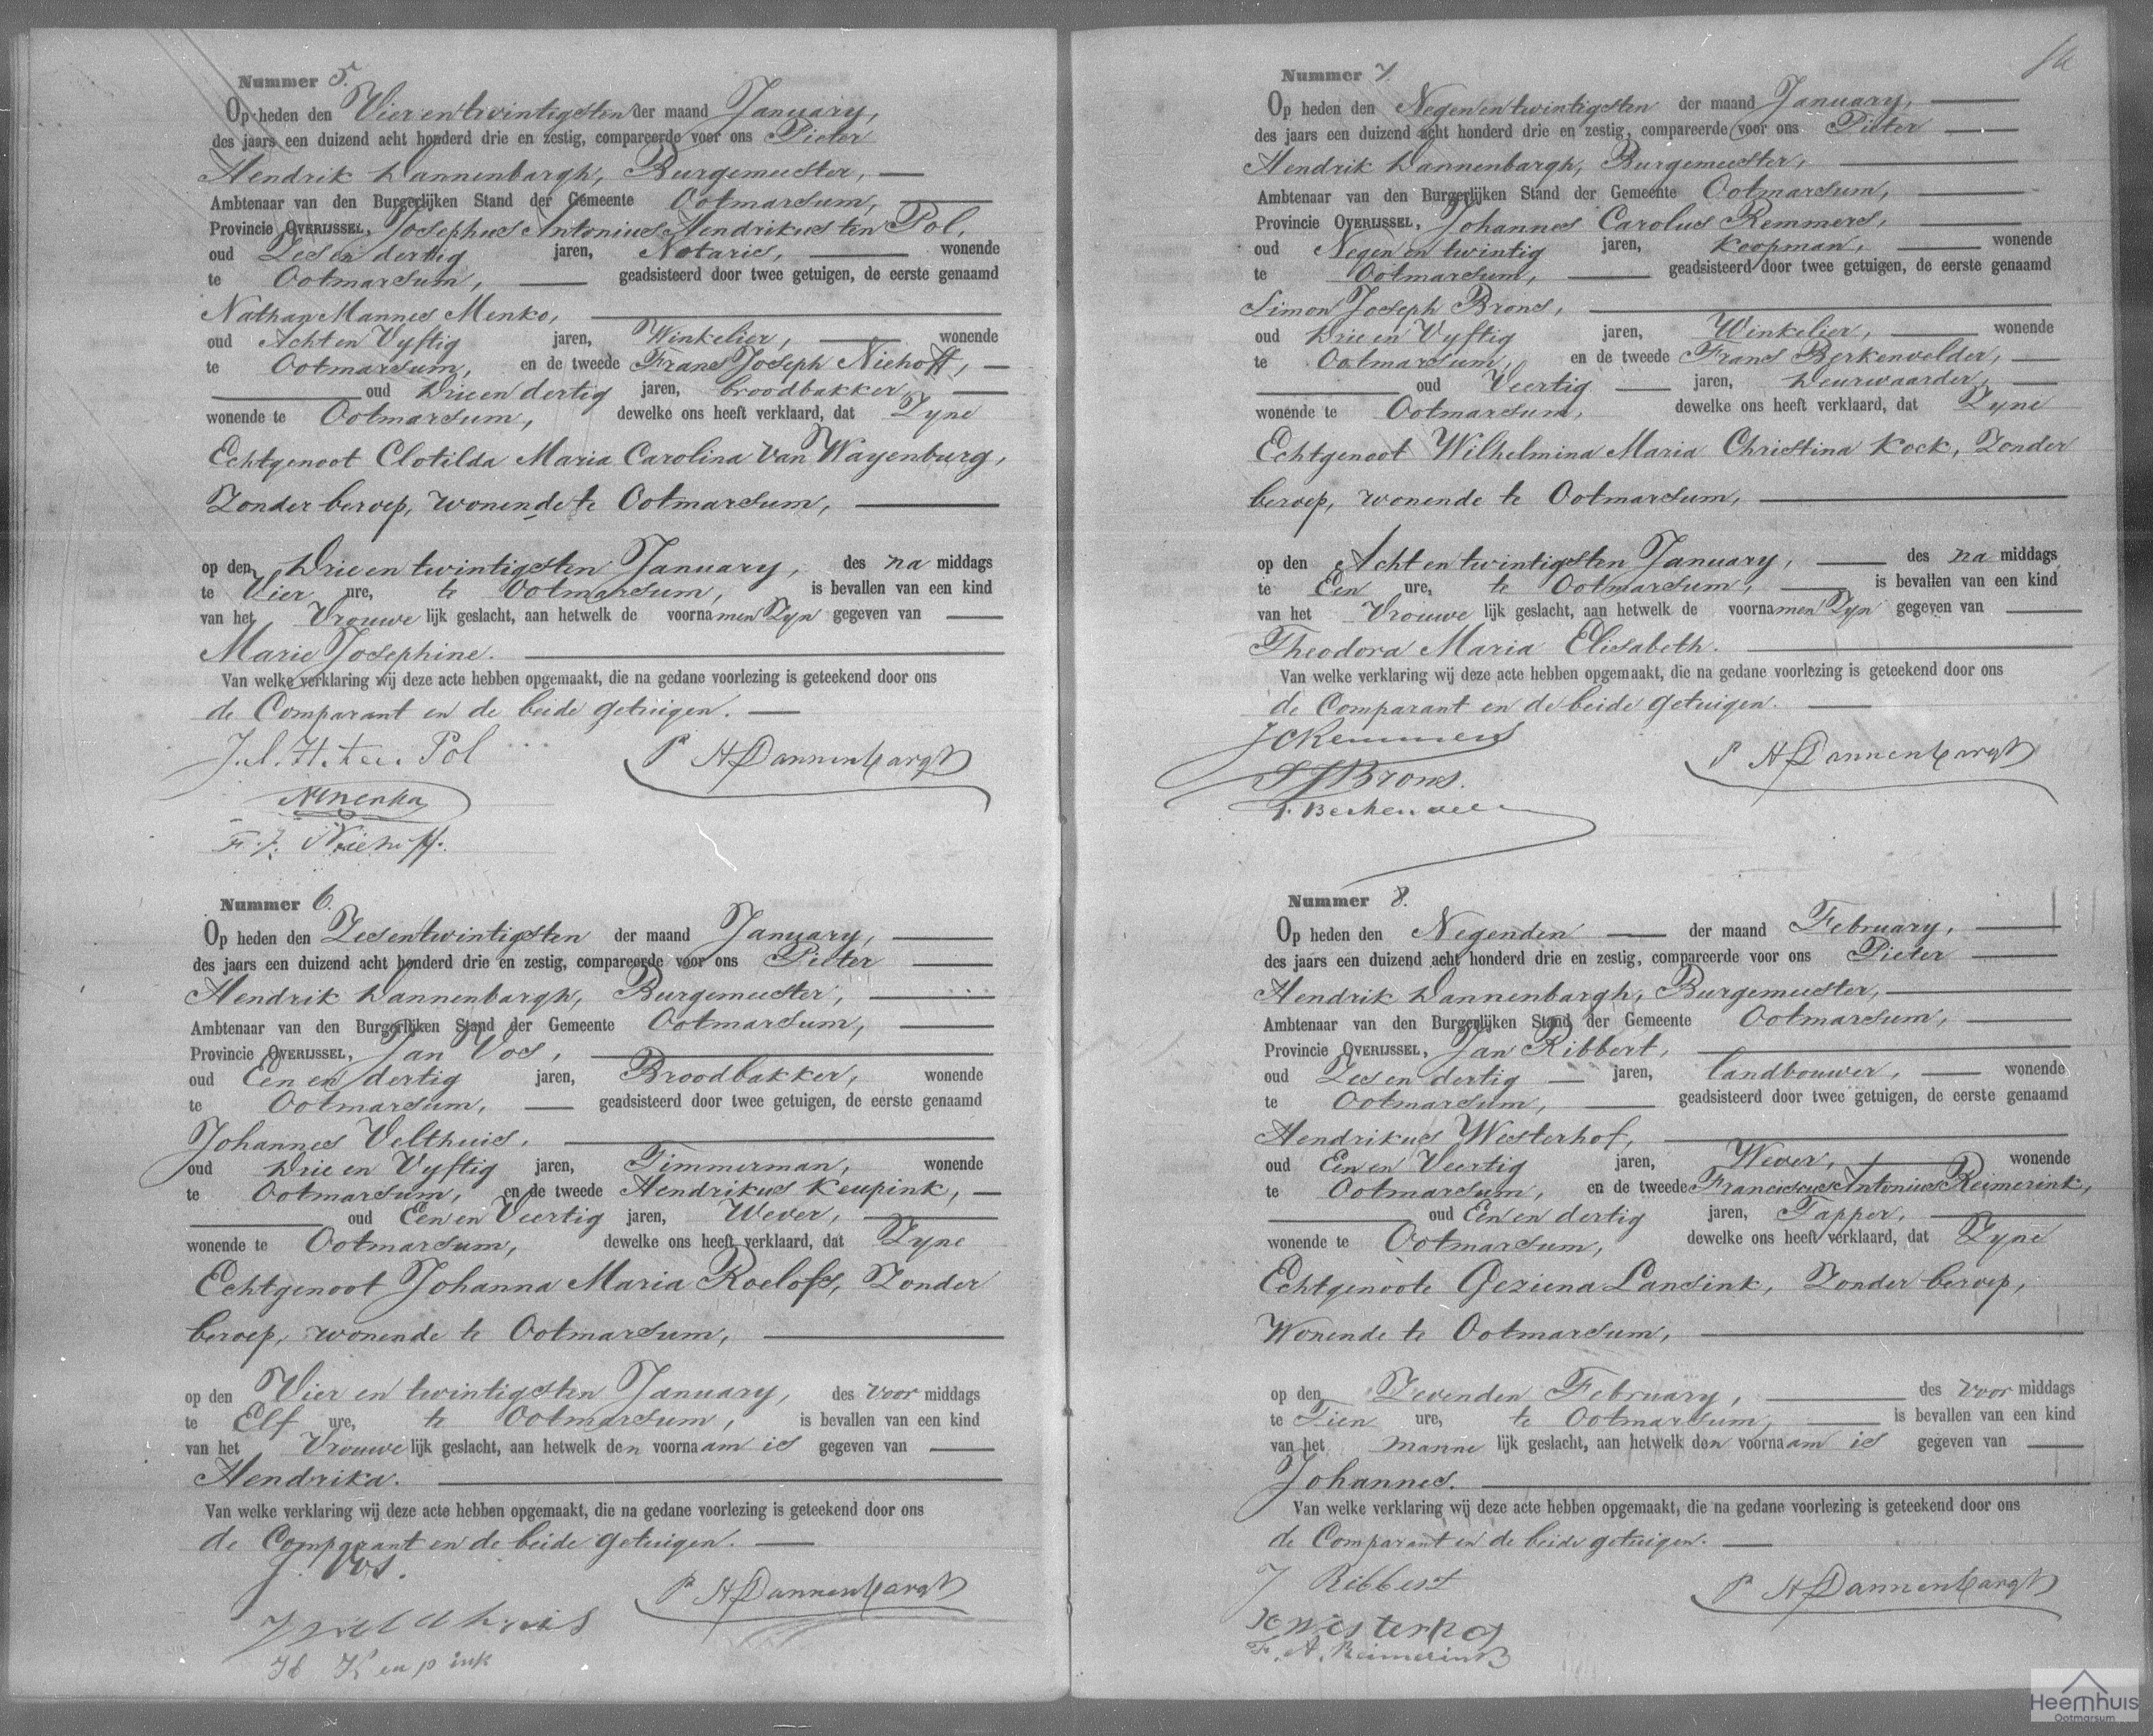 Nummer 5.
Op heden den Vier en twintigsten der maand January,
des jaars een duizend acht honderd drie en zestig, compareerde voor ons Pieter
Hendrik Dannenbargh, Burgemeester,
Ambtenaar van den Burgerlijken Stand der Gemeente Ootmarsum,
Provincie OVERIJSSEL, Josephus Antonius Hendrikus ten Pol,
oud Zes en dertig jaren, Notaris, wonende
te Ootmarsum, geadsisteerd door twee getuigen, de eerste genaamd
Nathan Mannes Menko,
oud Acht en Vyftig jaren, Winkelier, wonende
te Ootmarsum, en de tweede Frans Joseph Niehoff,
oud Drie en dertig jaren, broodbakker,
wonende te Ootmarsum, dewelke ons heeft verklaard, dat Zyne
Echtgenoot Clotilda Maria Carolina van Wayenburg,
Zonder beroep, wonende te Ootmarsum,
op den Drie en twintigsten January, des na middags
te Vier ure, te Ootmarsum, is bevallen van een kind
van het Vrouwe lijk geslacht, aan hetwelk de voornamen Zyn gegeven van
Marie Josephine.
Van welke verklaring wij deze acte hebben opgemaakt, die na gedane voorlezing is geteekend door ons
de Comparant en de beide getuigen.
J.A.H. ten Pol P H Dannenbargh
NMMenko
F. J. Niehoff.
Nummer 6.
Op heden den Zes en twintigsten der maand January,
des jaars een duizend acht honderd drie en zestig, compareerde voor ons Pieter
Hendrik Dannenbargh, Burgemeester,
Ambtenaar van den Burgerlijken Stand der Gemeente Ootmarsum,
Provincie OVERIJSSEL, Jan Vos,
oud Een en dertig jaren, Broodbakker, wonende
te Ootmarsum, geadsisteerd door twee getuigen, de eerste genaamd
Johannes Velthuis,
oud Drie en Vyftig jaren, Timmerman, wonende
te Ootmarsum, en de tweede Hendrikus Keupink,
oud Een en Veertig jaren, Wever,
wonende te Ootmarsum, dewelke ons heeft verklaard, dat Zyne
Echtgenoot Johanna Maria Roelofs, Zonder
beroep, wonende te Ootmarsum,
op den Vier en twintigsten January, des voor middags
te Elf ure, te Ootmarsum, is bevallen van een kind
van het Vrouwe lijk geslacht, aan hetwelk den voornaam is gegeven van
Hendrika.
Van welke verklaring wij deze acte hebben opgemaakt, die na gedane voorlezing is geteekend door ons
de Comparant en de beide getuigen.
J. Vos. P H Dannenbargh
J Velthuis
H Keupink
Nummer 7.
Op heden den Negen en twintigsten der maand January,
des jaars een duizend acht honderd drie en zestig, compareerde voor ons Pieter
Hendrik Dannenbargh, Burgemeester,
Ambtenaar van den Burgerlijken Stand der Gemeente Ootmarsum,
Provincie OVERIJSSEL, Johannes Carolus Remmers,
oud Negen en twintig jaren, Koopman, wonende
te Ootmarsum, geadsisteerd door twee getuigen, de eerste genaamd
Simon Joseph Brons,
oud Drie en Vyftig jaren, Winkelier, wonende
te Ootmarsum, en de tweede Frans Berkenvelder,
oud Veertig jaren, Deurwaarder,
wonende te Ootmarsum, dewelke ons heeft verklaard, dat Zyne
Echtgenoot Wilhelmina Maria Christina Kock, Zonder
beroep, wonende te Ootmarsum,
op den Acht en twintigsten January, des na middags
te Een ure, te Ootmarsum, is bevallen van een kind
van het Vrouwe lijk geslacht, aan hetwelk de voornamen Zyn gegeven van
Theodora Maria Elisabeth.
Van welke verklaring wij deze acte hebben opgemaakt, die na gedane voorlezing is geteekend door ons
de Comparant en de beide getuigen.
JCRemmers P H Dannenbargh
S J Brons.
Nummer 8.
Op heden den Negenden der maand February,
des jaars een duizend acht honderd drie en zestig, compareerde voor ons Pieter
Hendrik Dannenbargh, Burgemeester,
Ambtenaar van den Burgerlijken Stand der Gemeente Ootmarsum,
Provincie OVERIJSSEL, Jan Ribbert,
oud Zes en dertig jaren, landbouwer, wonende
te Ootmarsum, geadsisteerd door twee getuigen, de eerste genaamd
Hendrikus Westerhof,
oud Een en Veertig jaren, Wever, wonende
te Ootmarsum, en de tweede Franciscus Antonius Reimerink,
oud Een en dertig jaren, Tapper,
wonende te Ootmarsum, dewelke ons heeft verklaard, dat Zyne
Echtgenoote Geziena Lansink, Zonder beroep,
Wonende te Ootmarsum,
op den Zevenden February, des voor middags
te Tien ure, te Ootmarsum, is bevallen van een kind
van het manne lijk geslacht, aan hetwelk den voornaam is gegeven van
Johannes.
Van welke verklaring wij deze acte hebben opgemaakt, die na gedane voorlezing is geteekend door ons
de Comparant en de beide getuigen.
J Ribbert P H Dannenbargh
H Westerhof
F. A. Reimerink
Heemhuis
Ootmarsum